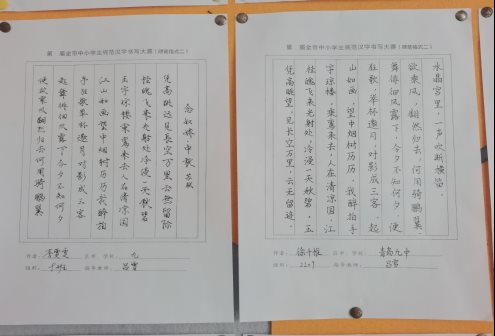 第 届全市中小学生规范汉字书写大赛(硬笔格式二)
念奴娇 中秋 苏轼
凭高眺远见长空万里云无留
桂魄飞来光射处冷浸一天秋碧
玉宇琼楼乘鸾来去人在清凉国
江山如画望中烟树历历我醉拍
手狂歌举杯邀月对影成三客
起舞徘徊风露下今夕不知何夕
便欲乘风翻然归去何用骑鹏翼
作者: 区市、学校: 九
组别: 指导教师:
第 届全市中小学生规范汉字书写大赛(硬笔格式二)
凭高眺望,见长空万里,云无留迹。
桂魄飞来光射处,冷浸一天秋碧。玉
宇琼楼,乘鸾来去,人在清凉国。江
山如画,望中烟树历历。我醉拍手
狂歌,举杯邀月,对影成三客。起
舞徘徊风露下,今夕不知何夕。便
欲乘风,翻然归去,何用骑鹏翼。
水晶宫里,一声吹断横笛。
作者: 区市、学校: 青岛九中
组别: 指导教师: